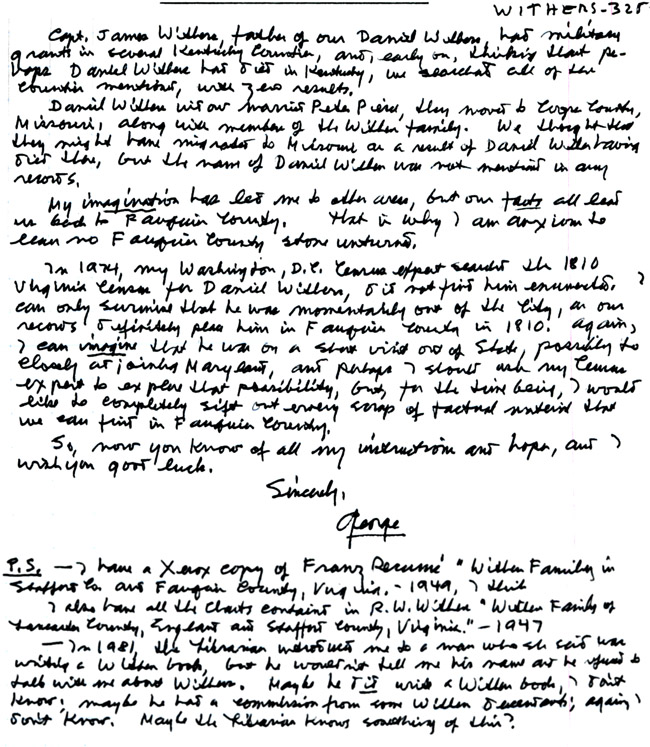 WITHERS-325
Capt. James Withers, father of our Daniel Withers, had military
grants in several Kentucky Counties, and, early on, thinking that per-
haps Daniel Withers had died in Kentucky, we searched all of the
Counties mentioned, with zero results.
Daniel Withers widow married Peter Pierce, they moved to Cooper County,
Missouri, along with members of the Withers family. We thought that
they might have migrated to Missouri as a result of Daniel Withers having
died there, but the name of Daniel Withers was not mentioned in any
records.
My imagination has led me to other areas, but our facts all lead
us back to Fauquier County. That is why I am anxious to
leave no Fauquier County stone unturned.
In 1974, my Washington, D.C. Census expert searched the 1810
Virginia Census for Daniel Withers, did not find him enumerated. I
can only surmise that he was momentarily out of the City, as our
records definitely place him in Fauquier County in 1810. Again,
I can imagine that he was on a short visit out of State, possibly to
closely adjoining Maryland, and perhaps I should ask my Census
expert to explore that possibility, but, for the time being, I would
like to completely sift out every scrap of factual material that
we can find in Fauquier County.
So, now you know of all my instructions and hopes, and I
wish you good luck.
Sincerely,
George
P.S. — I have a Xerox copy of Franz Resumé "Withers Family in
Stafford Co. and Fauquier County, Virginia. - 1949, I think
I also have all the Charts contained in R.W. Withers "Withers Family of
Lancaster County, England and Stafford County, Virginia." - 1947
— In 1981, the Librarian introduced me to a man who she said was
writing a Withers book, but he would not tell me his name and he refused to
talk with me about Withers. Maybe he did write a Withers book, I don't
know; maybe he had a commission from some Withers Descendants; again I
don't know. Maybe the Librarian knows something of this?